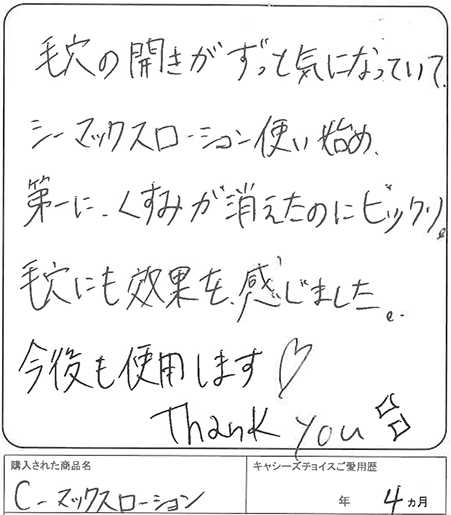 毛穴の開きがずっと気になっていて、
シーマックスローション使い始め、
第一に、くすみが消えたのにビックリ。
毛穴にも効果を感じました。
今後も使用します♡
Thank you
購入された商品名
キャシーズチョイスご愛用歴
C-マックスローション
年 4ヵ月